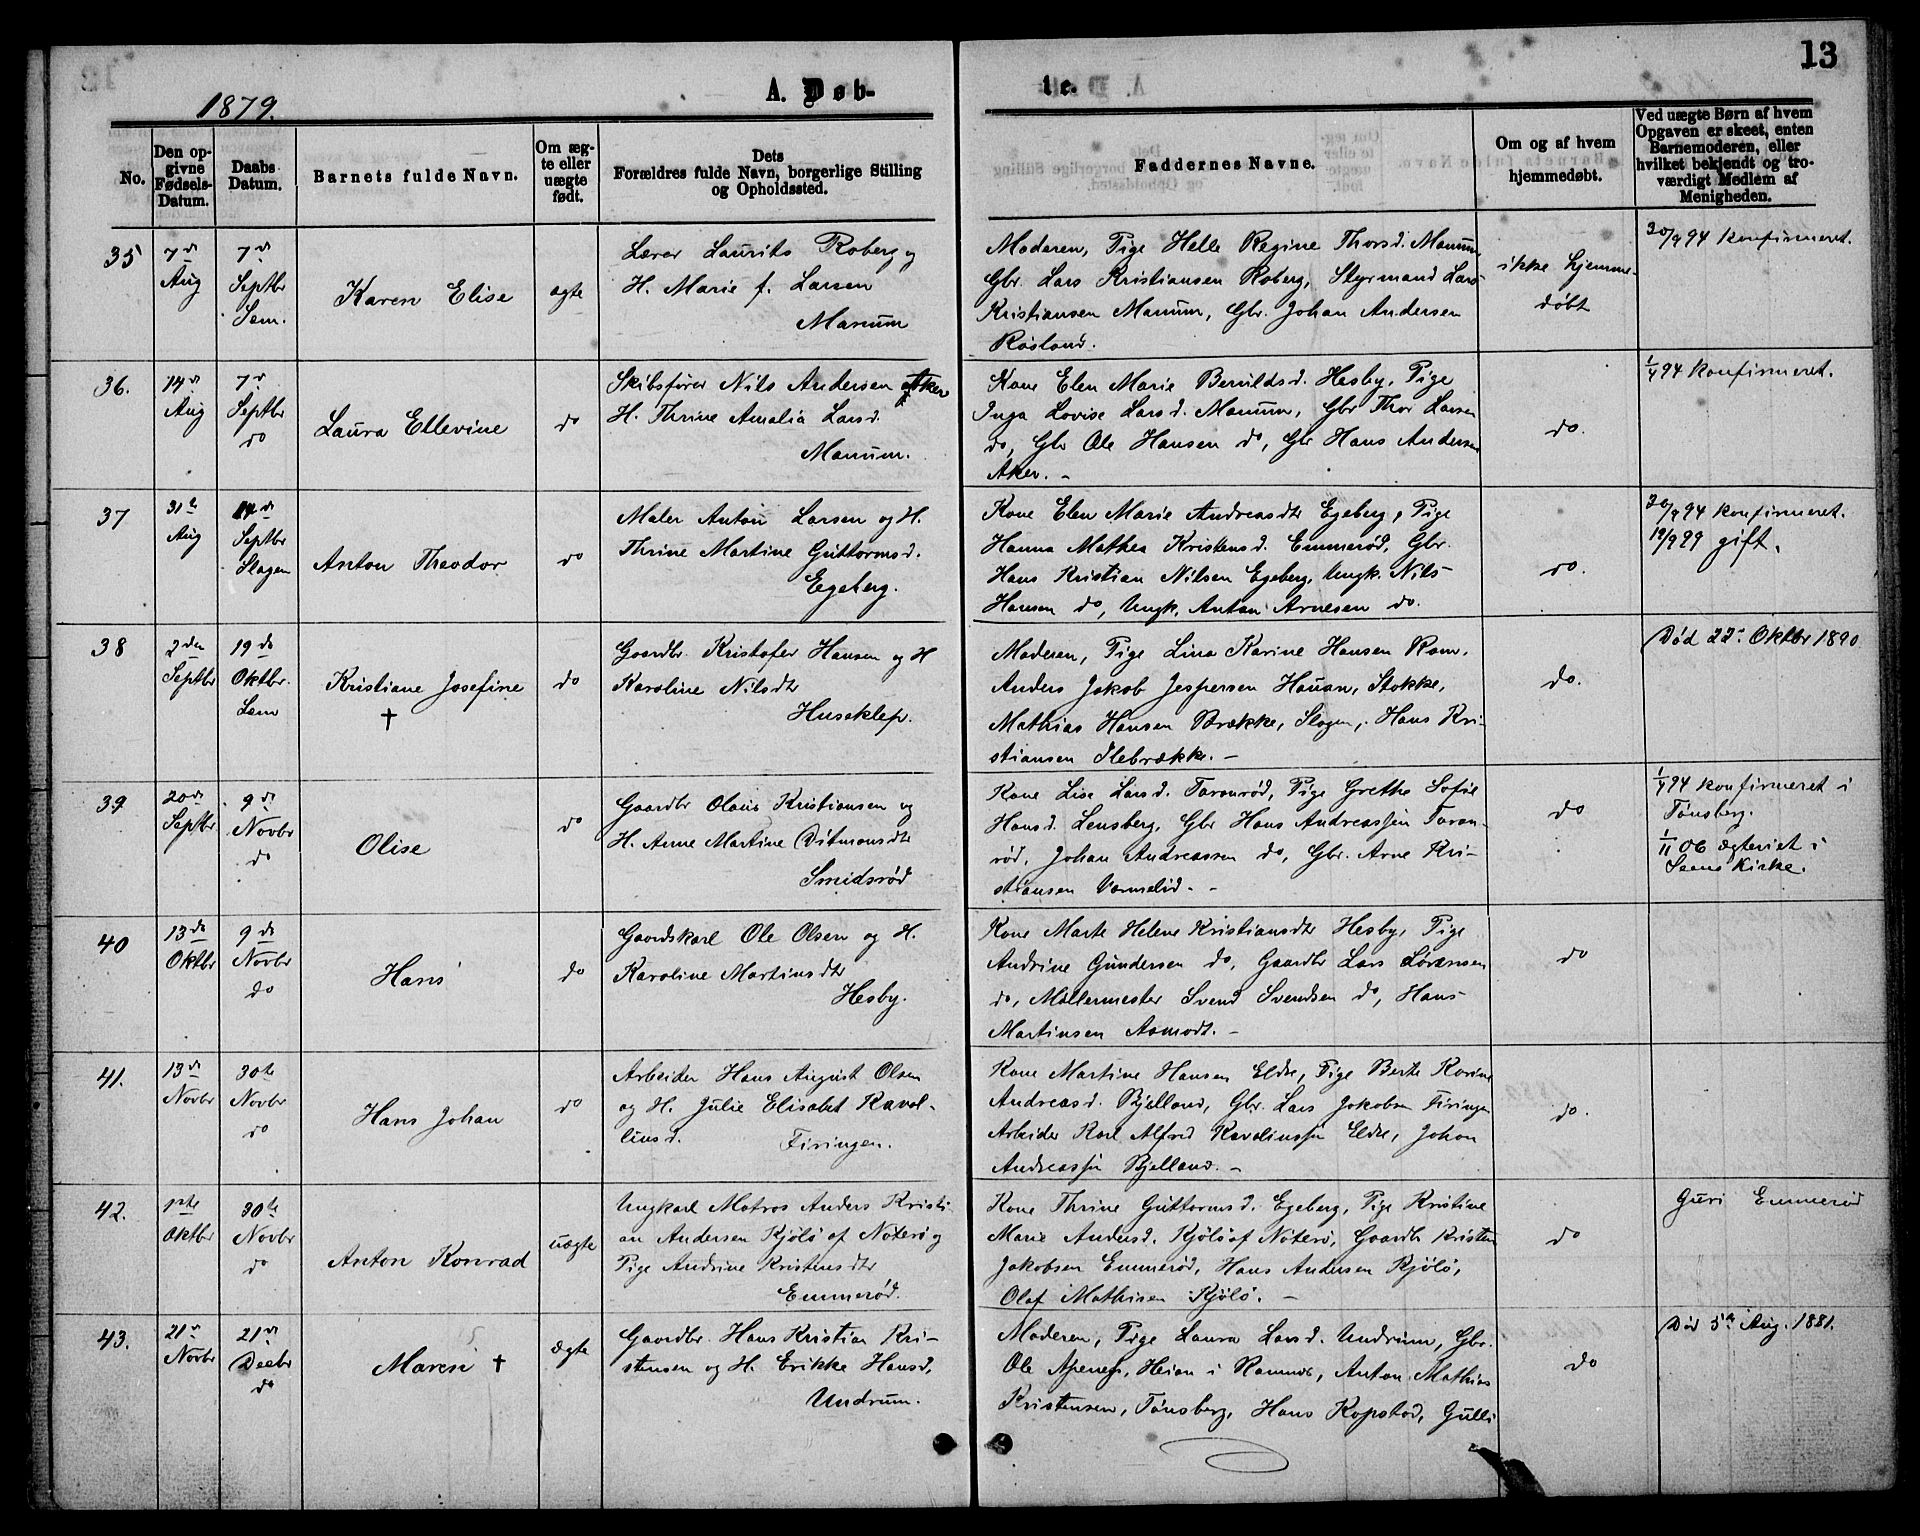 13
1879.
A. Døb-
te.
No.
Den op-
givne
Fødsels-
Datum.
Daabs
Datum.
Barnets fulde Navn.
Om æg-
te eller
uægte
født.
Dets
Forældres fulde Navn, borgerlige Stilling
og Opholdssted.
Faddernes Navne.
Om og af hvem
hjemmedøbt.
Ved uægte Børn af hvem
Opgaven er skeet, enten
Barnemoderen, eller
hvilket bekjendt og tro-
værdigt Medlem af
Menigheden.
35
7de
Aug
7de
Septbr
Sem.
Karen Elise
ægte
Lærer Laurits Roberg og
H. Marie f. Larsen
Manum
Moderen, Pige Helle Regine Thorsd. Manum,
Gbr. Lars Kristiansen Roberg, Styrmand Lars
Kristiansen Manum, Gbr. Johan Andersen
Røsland.
ikke hjemme-
døbt
30/9 94 konfirmeret.
36.
14de
Aug
7de
Septbr
do
Laura Ellevine
do
Skibsfører Nils Andersen Aker
H. Thrine Amalia Larsd.
Manum.
Kone Elen Marie Beruldsd. Hesby, Pige
Inga Lovise Larsd. Manum, Gbr Thor Larsen
do, Gbr Ole Hansen do, Gbr Hans Andersen
Aker. -
do.
1/4 94 konfirmeret.
37
31te
Aug
14de
Septbr
Slagen
Anton Theodor
do
Maler Anton Larsen og H.
Thrine Martine Guttormsd.
Egeberg.
Kone Elen Marie Andreasdtr Egeberg, Pige
Hanna Mathea Kristensd. Emmerød, Gbr.
Hans Kristian Nilsen Egeberg, Ungk. Nils
Hansen do, Ungk. Anton Arnesen do.
do.
30/9 94 konfirmeret.
12/9 99 gift.
38
2den
Septbr
19de
Oktbr.
Sem
Kristiane Josefine
†
do
Gaardbr. Kristofer Hansen og H
Karoline Nilsdtr
Huseklep.
Moderen, Pige Lina Karine Hansen Rom,
Anders Jakob Jespersen Hauan, Stokke,
Mathias Hansen Brække, Slagen, Hans Kri-
stiansen Ilebrække. -
do.
Død 22de Oktbr 1890
39
20de
Septbr
9de
Novbr
do
Olise
do
Gaardbr Olaus Kristiansen og
H. Anne Martine Ditmansdtr
Smidsrød
Kone Lise Larsd. Taranrød, Pige Grethe Sofie
Hansd. Lensberg, Gbr Hans Andreassen Taran-
rød, Johan Andreassen do, Gbr. Arne Kri-
stiansen Varmelid. -
do
1/4 94 konfirmeret i
Tønsberg.
1/11 06 ægteviet i
Sems Kirke.
40
13de
Oktbr
9de
Novbr
do
Hans
do
Gaardskarl Ole Olsen og H.
Karoline Martinsdtr
Hesby.
Kone Marte Helene Kristiansdtr Hesby, Pige
Andrine Gundersen do, Gaardbr Lars Sørensen
do, Møllermester Svend Svendsen do, Hans
Martinsen Aamodt. -
do
41.
13de
Novbr
30te
Novbr
do
Hans Johan
do
Arbeider Hans August Olsen
og H. Julie Elisabet Karol-
iusd.
Firingen.
Kone Martine Hansen Eldre, Pige Berte Karine
Andreasd. Bjelland, Gbr. Lars Jakobsen Firingen
Arbeider Karl Alfred Karoliussen Eldre, Johan
Andreassen Bjelland. -
do.
42.
1ste
Oktbr
30te
Novbr
do
Anton Konrad
uægte
Ungkarl Matros Anders Kristi
an Andersen Kjølø af Nøterø og
Pige Andrine Kristensdtr
Emmerød.
Kone Thrine Guttormsd. Egeberg, Pige Kristine
Marie Andersd. Kjølø af Nøterø, Gaardbr Kristen
Jakobsen Emmerød, Hans Andersen Kjølø,
Olaf Mathisen Kjølø. -
do
Guri Emmerød
43.
21de
Novbr
21de
Decbr
do
Maren †
ægte
Gaardbr. Hans Kristian Kri-
stensen og H. Erikke Hansd,
Undrum.
Moderen, Pige Laura Larsd. Undrum, Gbr.
Ole Heian i Ramnes, Anton Mathias
Kristensen, Tønsberg, Hans Kopstad, Gulli
do
Død 5te Aug. 1881.